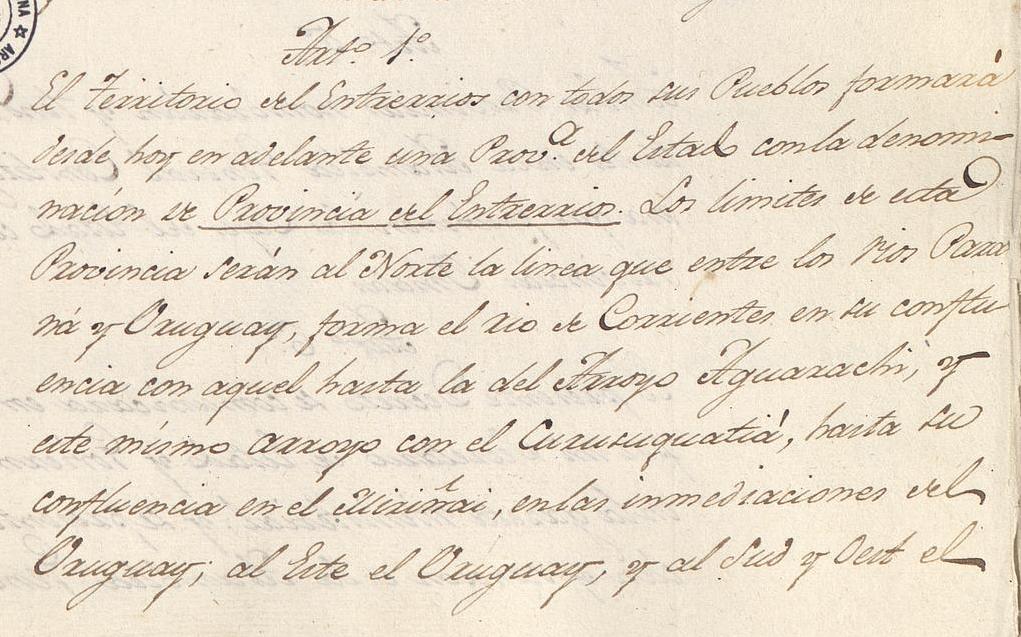 Arto. 1º.
El Territorio del Entrerrios con todos sus Pueblos formará
desde hoy en adelante una Prov.a del Estado con la denomi-
nación de Provincia del Entrerrios. Los limites de esta
Provincia serán al Norte la linea que entre los rios Para-
ná y Uruguay, forma el rio de Corrientes en su conflu-
encia con aquel hasta la del Arroyo Aguarachi, y
este mismo arroyo con el Curusuquatiá, hasta su
confluencia en el Miriñai, en las inmediaciones del
Uruguay; al Este el Uruguay, y al Sud y Oest el